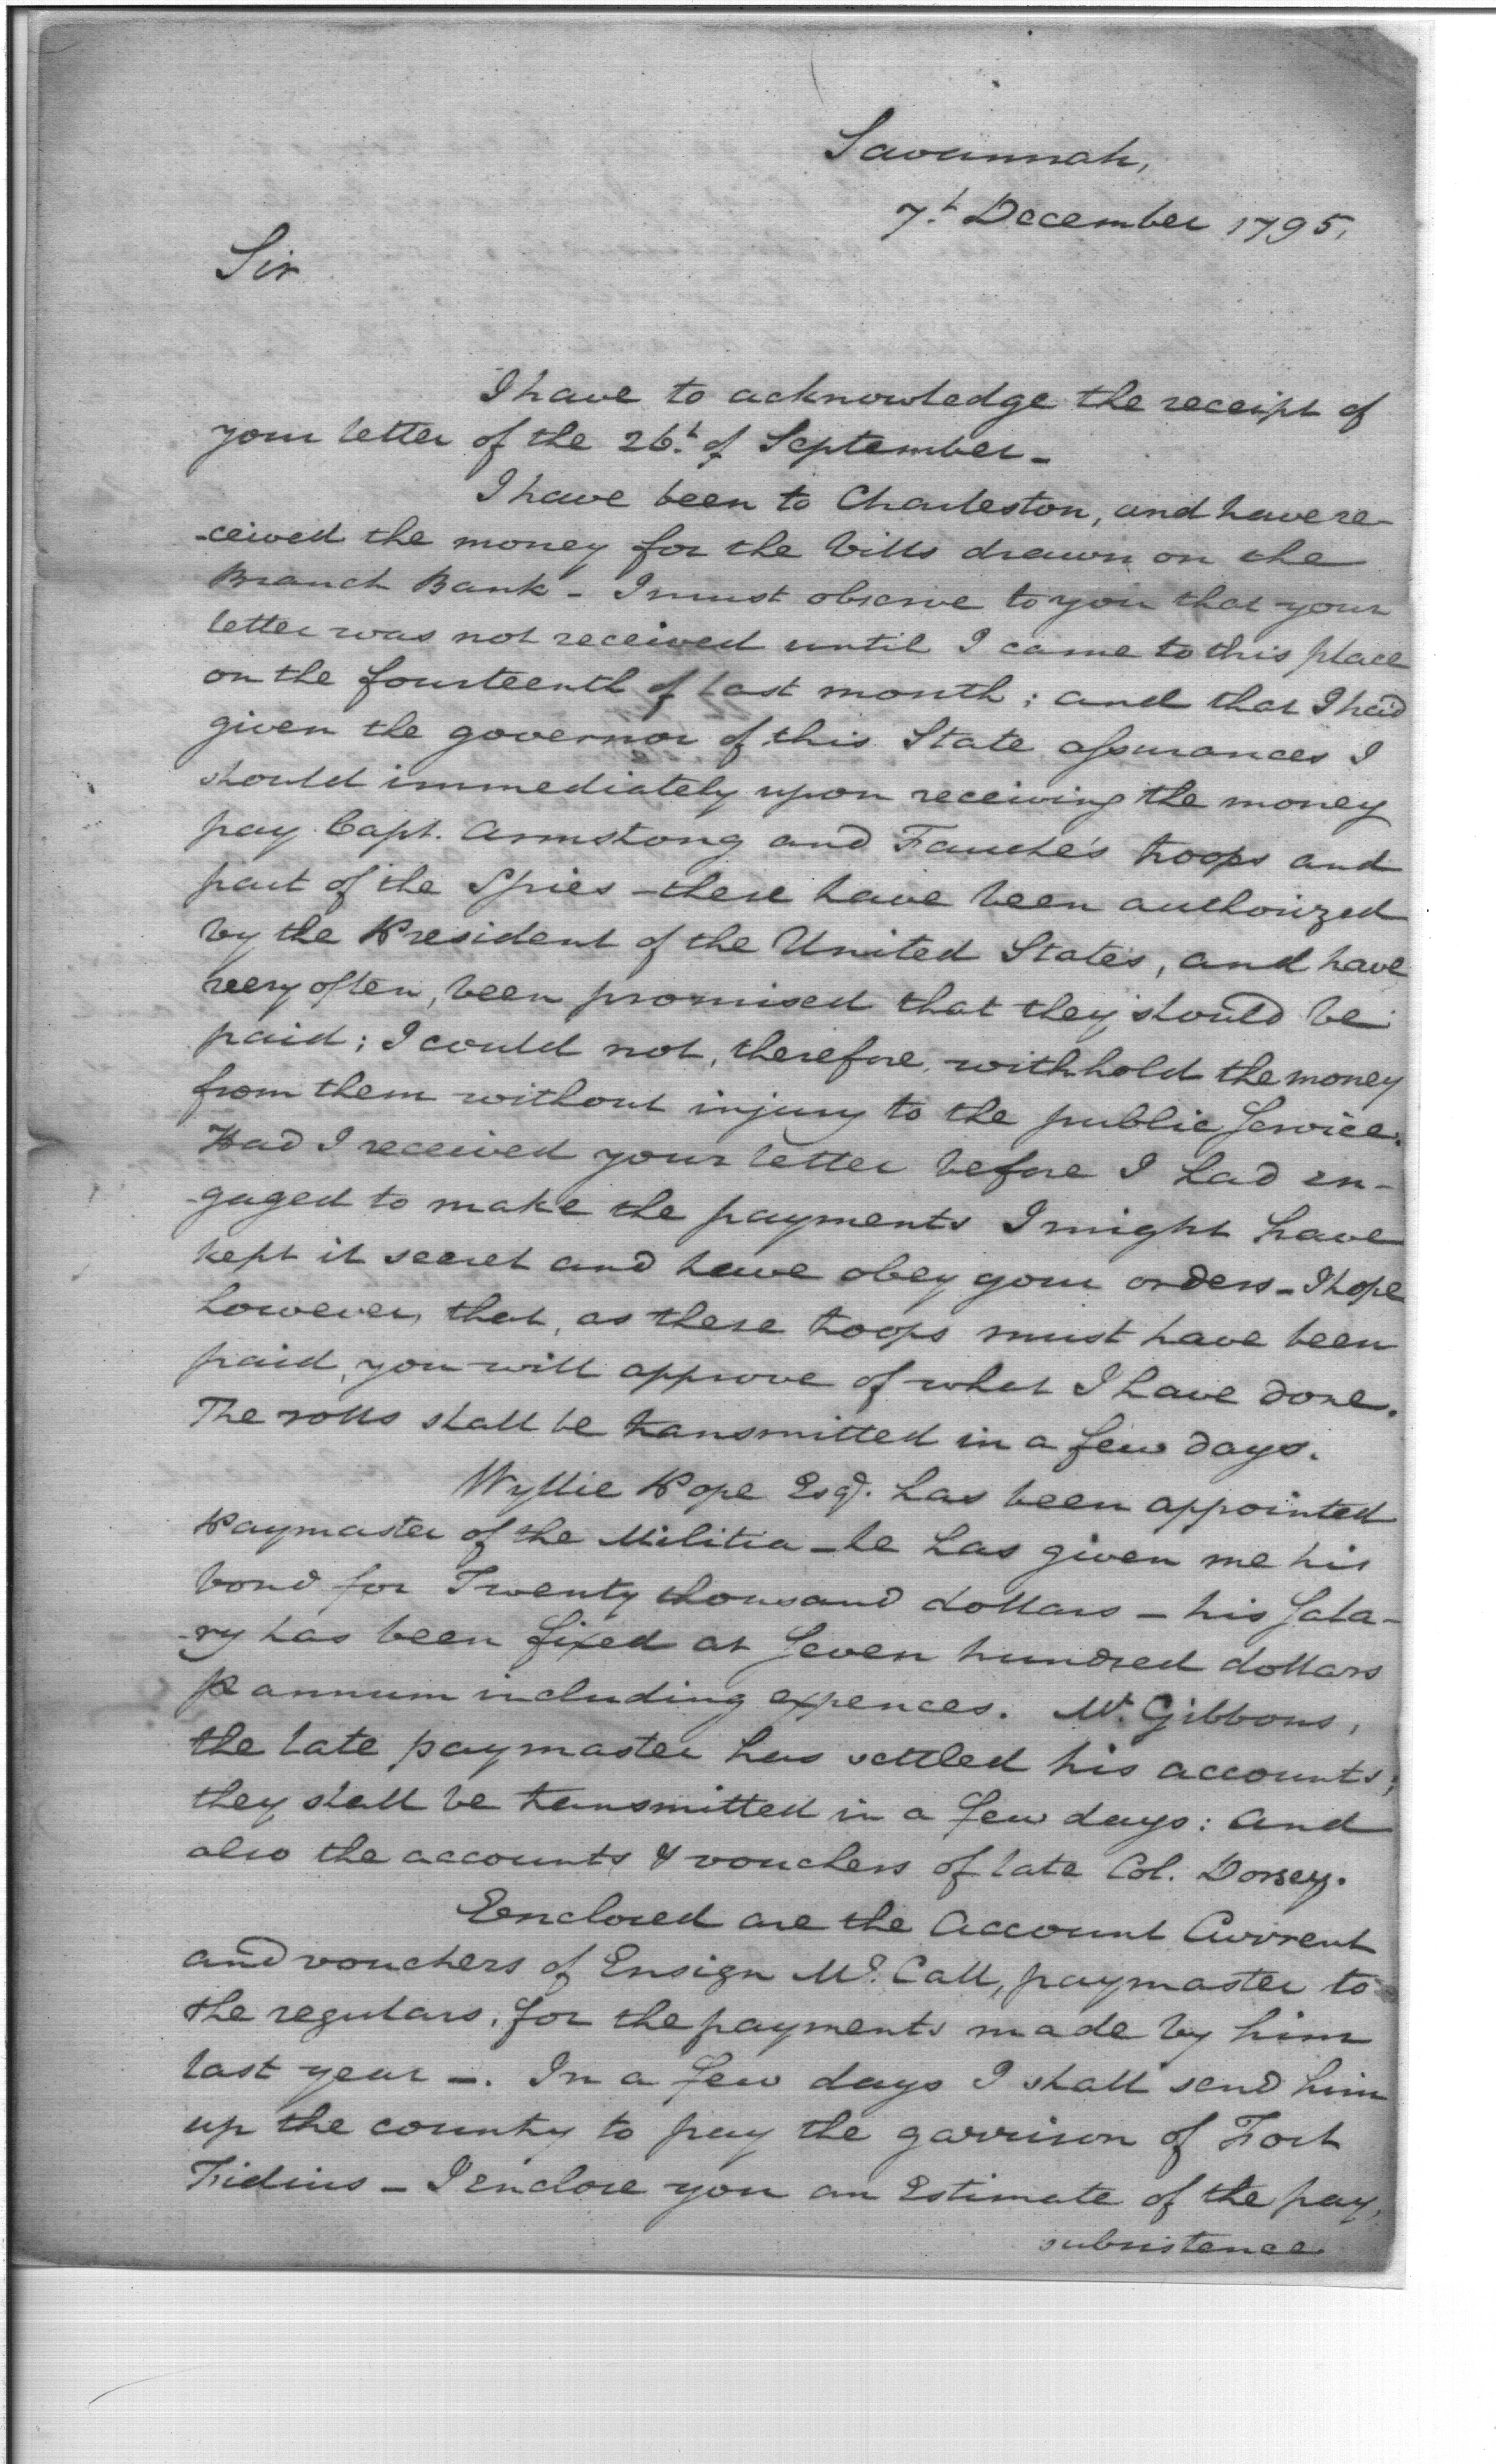 Savannah,
7.t December 1795.
Sir
I have to acknowledge the receipt of
your letter of the 26.t of September -
I have been to Charleston, and have re-
-ceived the money for the bills drawn on the
Branch Bank - I must observe to you that your
letter was not received until I came to this place
on the fourteenth of last month ; and that I had
given the governor of this State assurances I
should immediately upon receiving the money
pay Capt. Armstong and Fauche's troops and
part of the Spies - these have been authorized
by the President of the United States, and have
very often, been promised that they should be
paid ; I could not, therefore, withhold the money
from them without injury to the public Service.
Had I received your letter before I had en-
-gaged to make the payments I might have
kept it secret and have obey your orders - I hope
however, that, as these troops must have been
paid, you will approve of what I have done.
The rolls shall be transmitted in a few days.
Wyllie Pope Esq.r has been appointed
Paymaster of the Militia - he has given me his
bond for Twenty thousand dollars - his Sala-
-ry has been fixed at Seven hundred dollars
p annum including expences. Mr. Gibbons,
the late paymaster has settled his accounts ;
they shall be transmitted in a few days : and
also the accounts & vouchers of late Col. Dorsey.
Eenclosed are the Account Current
and vouchers of Ensign Mc.Call, paymaster to
the regulars, for the payments made by him
last year -. In a few days I shall send him
up the country to pay the garrison of Fort
Fidius - I enclose you an Estimate of the pay,
subsistence